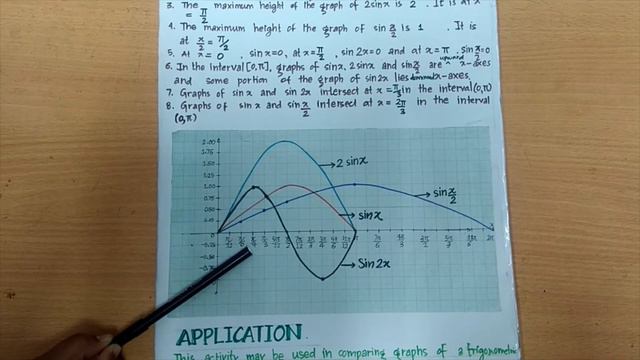 3. The maximum height of the graph of 2sinx is 2. It is at x
= π/2
4. The maximum height of the graph of sin x/2 is 1. It is
at x/2 = π/2
5. At x=0, sinx=0, at x=π/2, sin2x=0 and at x=π, sin x/2=0
6. In the interval [0,π], graphs of sinx, 2sinx and sin x/2 are upward x-axes
and some portion of the graph of sin2x lies downward x-axes.
7. Graphs of sinx and sin2x intersect at x=π/3 in the interval (0,π)
8. Graphs of sinx and sin x/2 intersect at x = 2π/3 in the interval
(0,π)
2.00
1.75
1.50
1.25
1.00
0.75
0.50
0
2 sinx
sin x/2
sinx
Sin2x
APPLICATION
This activity may be used in comparing graphs of a trigonometric